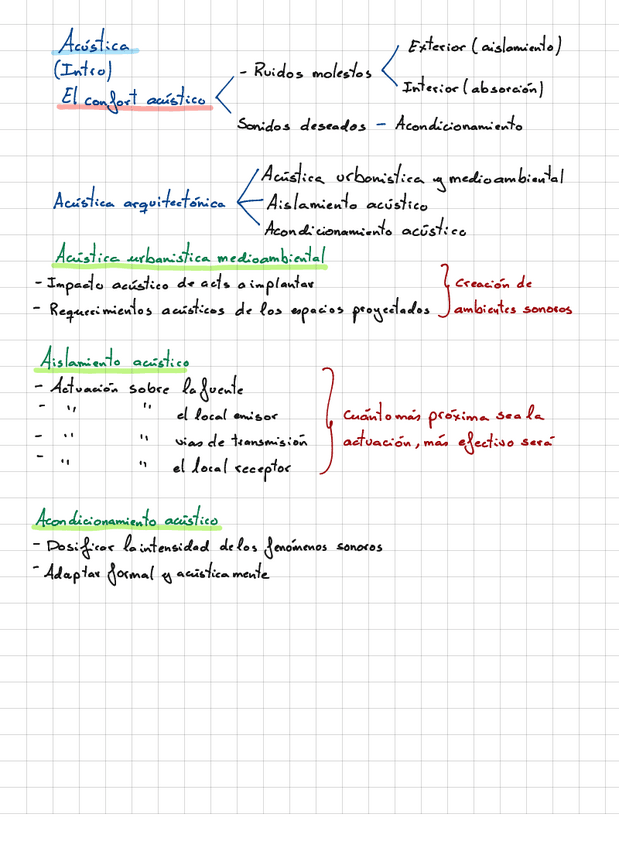 Acústica
(Intro)
El confort acústico
- Ruidos molestos
Exterior (aislamiento)
Interior (absorción)
Sonidos deseados - Acondicionamiento
Acústica arquitectónica
Acústica urbanistica y medioambiental
Aislamiento acústico
Acondicionamiento acústico
Acústica urbanistica medioambiental
- Impacto acústico de acts a implantar
- Requerimientos acústicos de los espacios proyectados
Creación de
ambientes sonoros
Aislamiento acústico
- Actuación sobre la fuente
- " " el local emisor
- " " vias de transmisión
- " " el local receptor
Cuánto más próxima sea la
actuación, más efectivo será
Acondicionamiento acústico
- Dosificar la intensidad de los fenómenos sonoros
- Adaptar formal y acústicamente